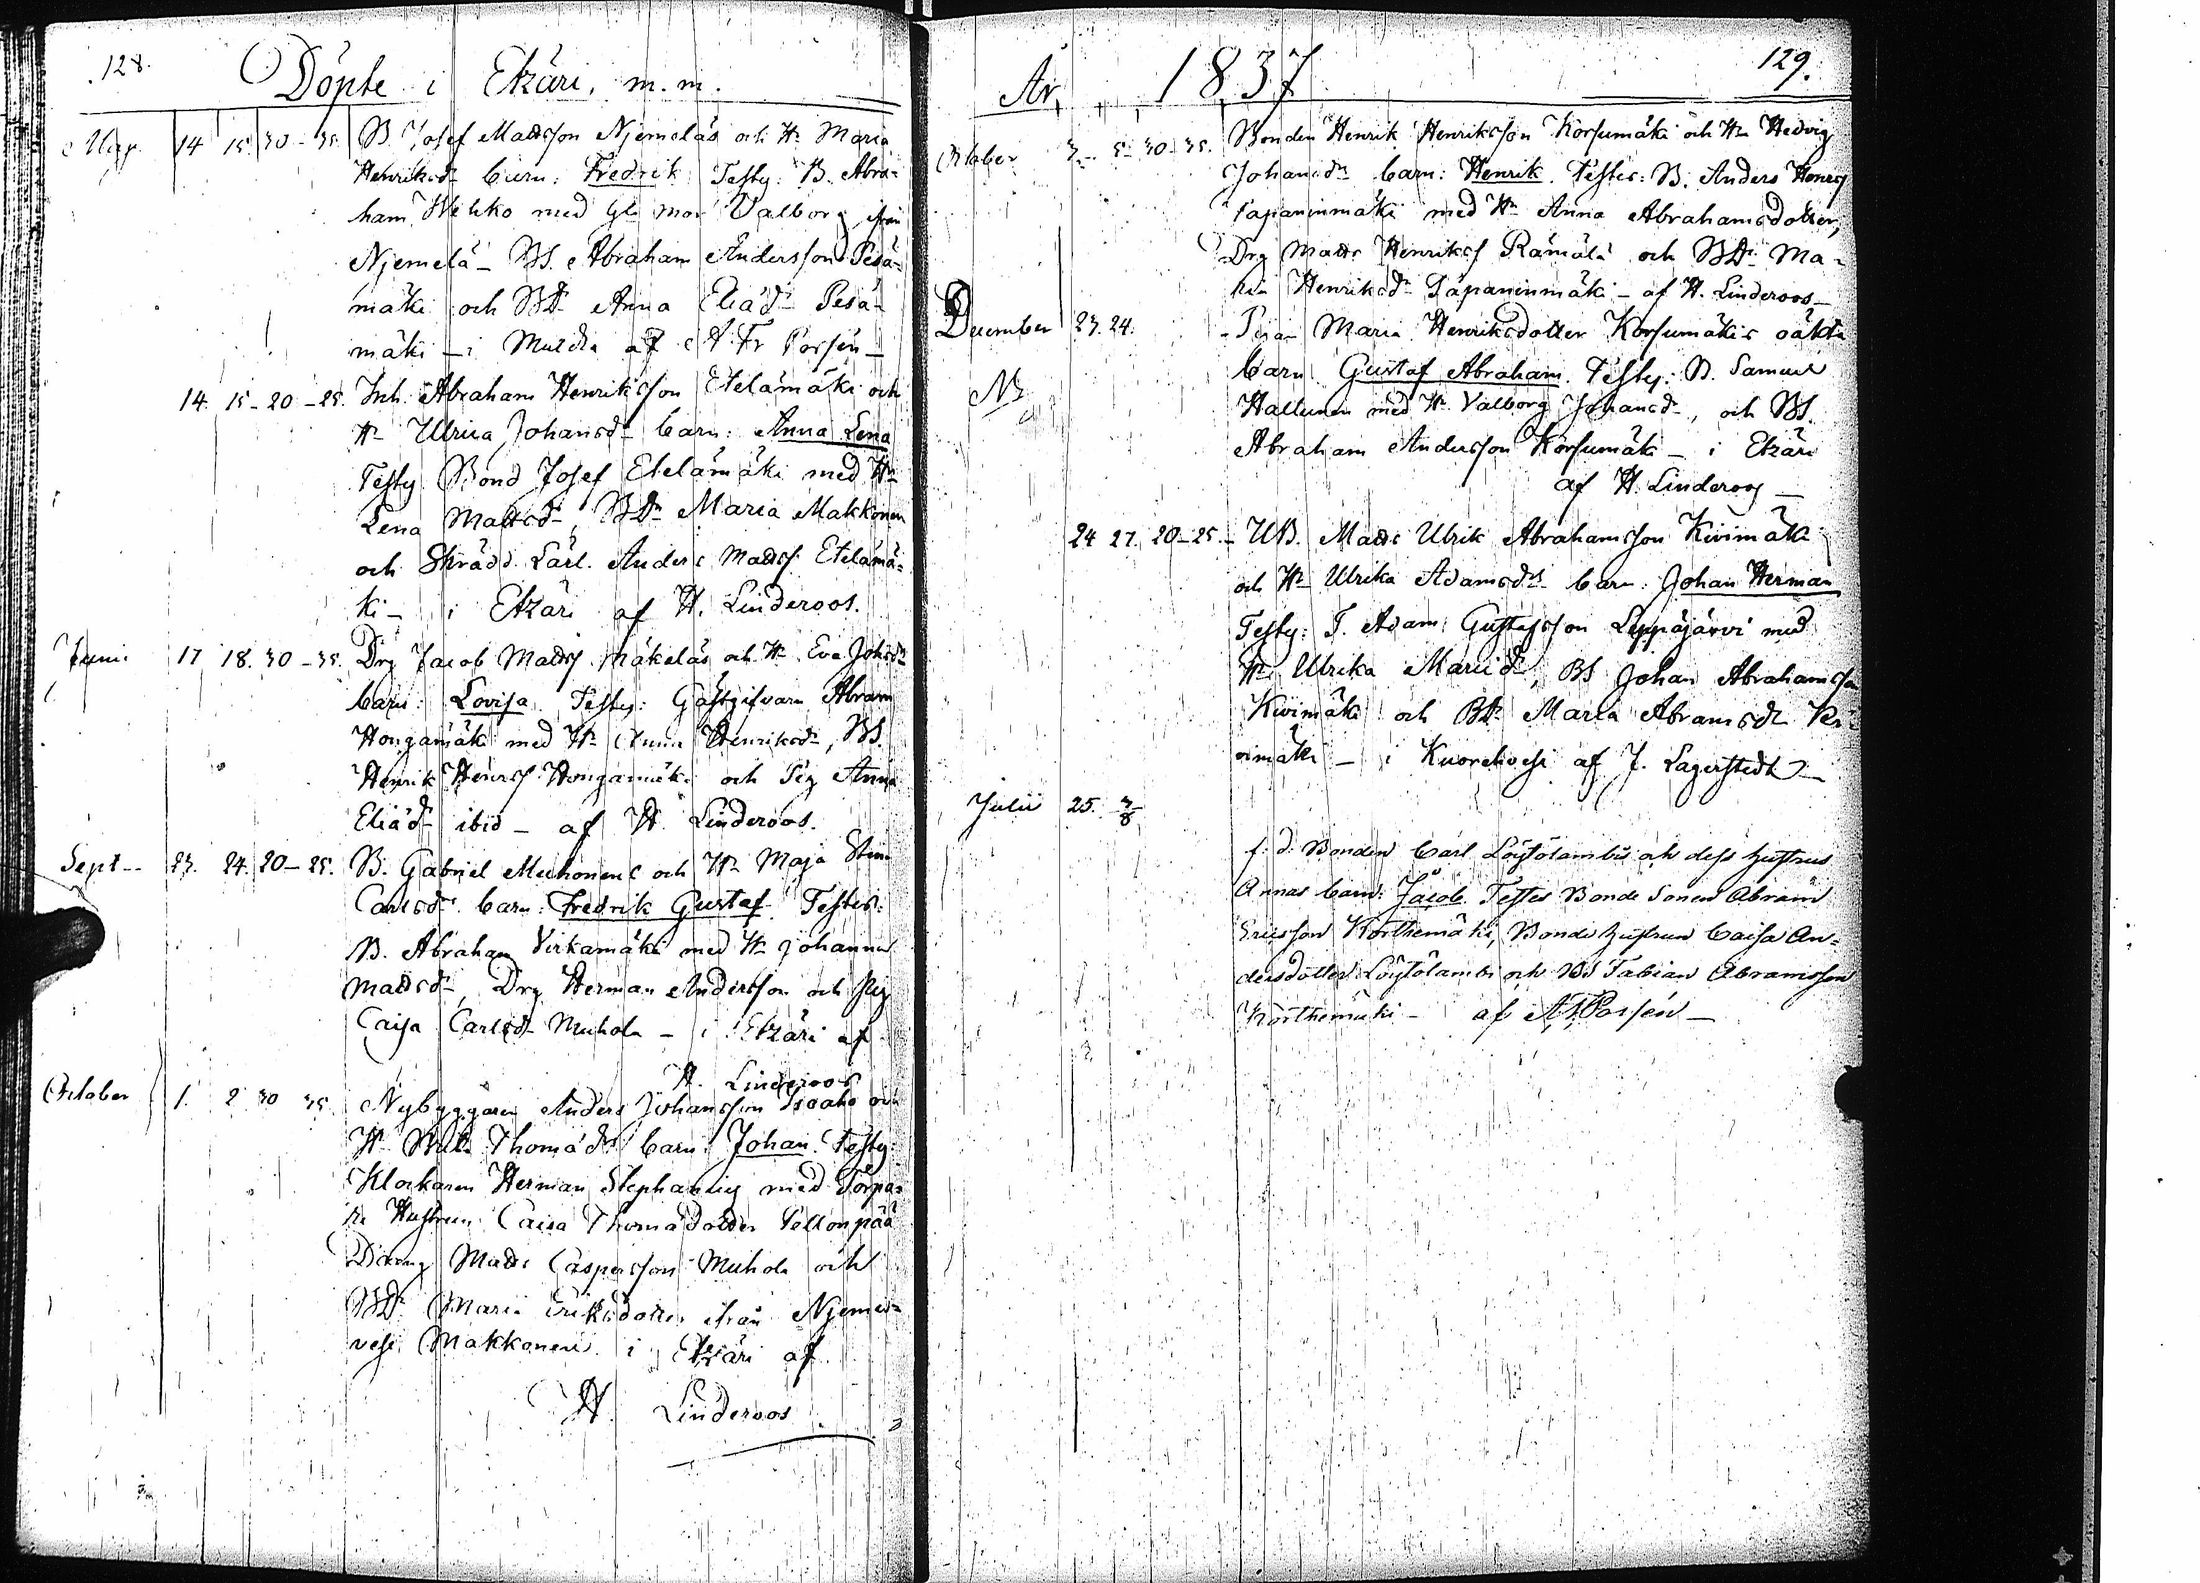 128.
Döpte i Etzäri, m. m.
Maji 14 15. 30-35. B. Josef Mattsson Njemeläs och H. Maria
Henriksdr barn: Fredrik Testes: B. Abra-
ham Wehko med gl. mor Valborg från
Njemelä - BS. Abraham Andersson Pesä-
mäki och BDr Anna Eliædr Pesä-
mäki - i Muldia af A. Fr Porsén -
14. 15-20-25. Inh. Abraham Henriksson Etelämäki och
Hu Ulrica Johansdr barn: Anna Lena
Testes Bond Josef Etelämäki med Hu
Lena Mattsdr, BDr Maria Makkonen
och Skrädd. Lärl. Anders Mattss. Etelämä-
ki - i Etzäri af H. Linderoos.
Junii 17 18. 30-35. Drg Jacob Mattss Mäkeläs och Hu Eva Johsdr
barn: Lovisa. Testes: Gästgifvarn Abram
Hongamäki med Hu Anna Henriksdr, BS.
Henrik Henrss Hongamäki och Pig Anna
Eliædr ibid - af H. Linderoos.
Sept - 23. 24. 20-25. B. Gabriel Muhonens och Hu Maja Stin
Carlsdr barn: Fredrik Gustaf. Testes:
B. Abraham Virkamäki med Hu Johanna
Mattsdr, Drg Herman Andersson och Pig
Caisa Carlsdr Muhola - i Etzäri af
H. Linderoos
October 1. 2 30 35. Nybyggaren Anders Johansson Isoaho och
Hu Thomædr barn: Johan. Testes:
Klockaren Herman Stephanius med Torpa-
re Hustrun Caisa Thomædotter Peltonpää
Dräng Matts Caspersson Muhola och
BDr Maria Eriksdotter från Njemis-
vesi Makkonen i Etzäri af
H. Linderoos
År 1837 129.
October 3. 5. 30-35. Bonden Henrik Henriksson Korsumäki och Hu Hedvig
Johansdr barn: Henrik. Testes: B. Anders Henrss
Papaninmäki med Hu Anna Abrahamsdotter,
Drg Matts Henrikss Rämälä och BDr Ma-
ria Henriksdr Papaninmäki - af H. Linderoos -
December 23. 24. - Pigan Maria Henriksdotter Korsumäkis oäkta
barn Gustaf Abraham. Testes: B. Samuel
Hallunen med Hu Valborg Johansdr, och BS.
Abraham Andersson Korsumäki - i Etzäri
af H. Linderoos -
24 27. 20-25. - UB. Matts Ulrik Abrahamsson Kivimäki
och Hu Ulrika Adamsdr barn: Johan Herman
Testes: T. Adam Gustafsson Leppäjärvi med
Hu Ulrika Mariædr, BS Johan Abrahamsson
Kivimäki och BDr Maria Abramsdr Ki-
vimäki - i Kuorehvesi af J. Lagerstedt -
Julii 25. 3/8
f. d. Bonden Carl Löytölambis och dess hustrus
Annas barn: Jacob. Testes Bonde Sonen Abram
Ericsson Korthemäki, Bonde hustrun Caisa An-
dersdotter Löytölambi och BS Fabian Abramsson
Korthemäki - af A F Porsén -